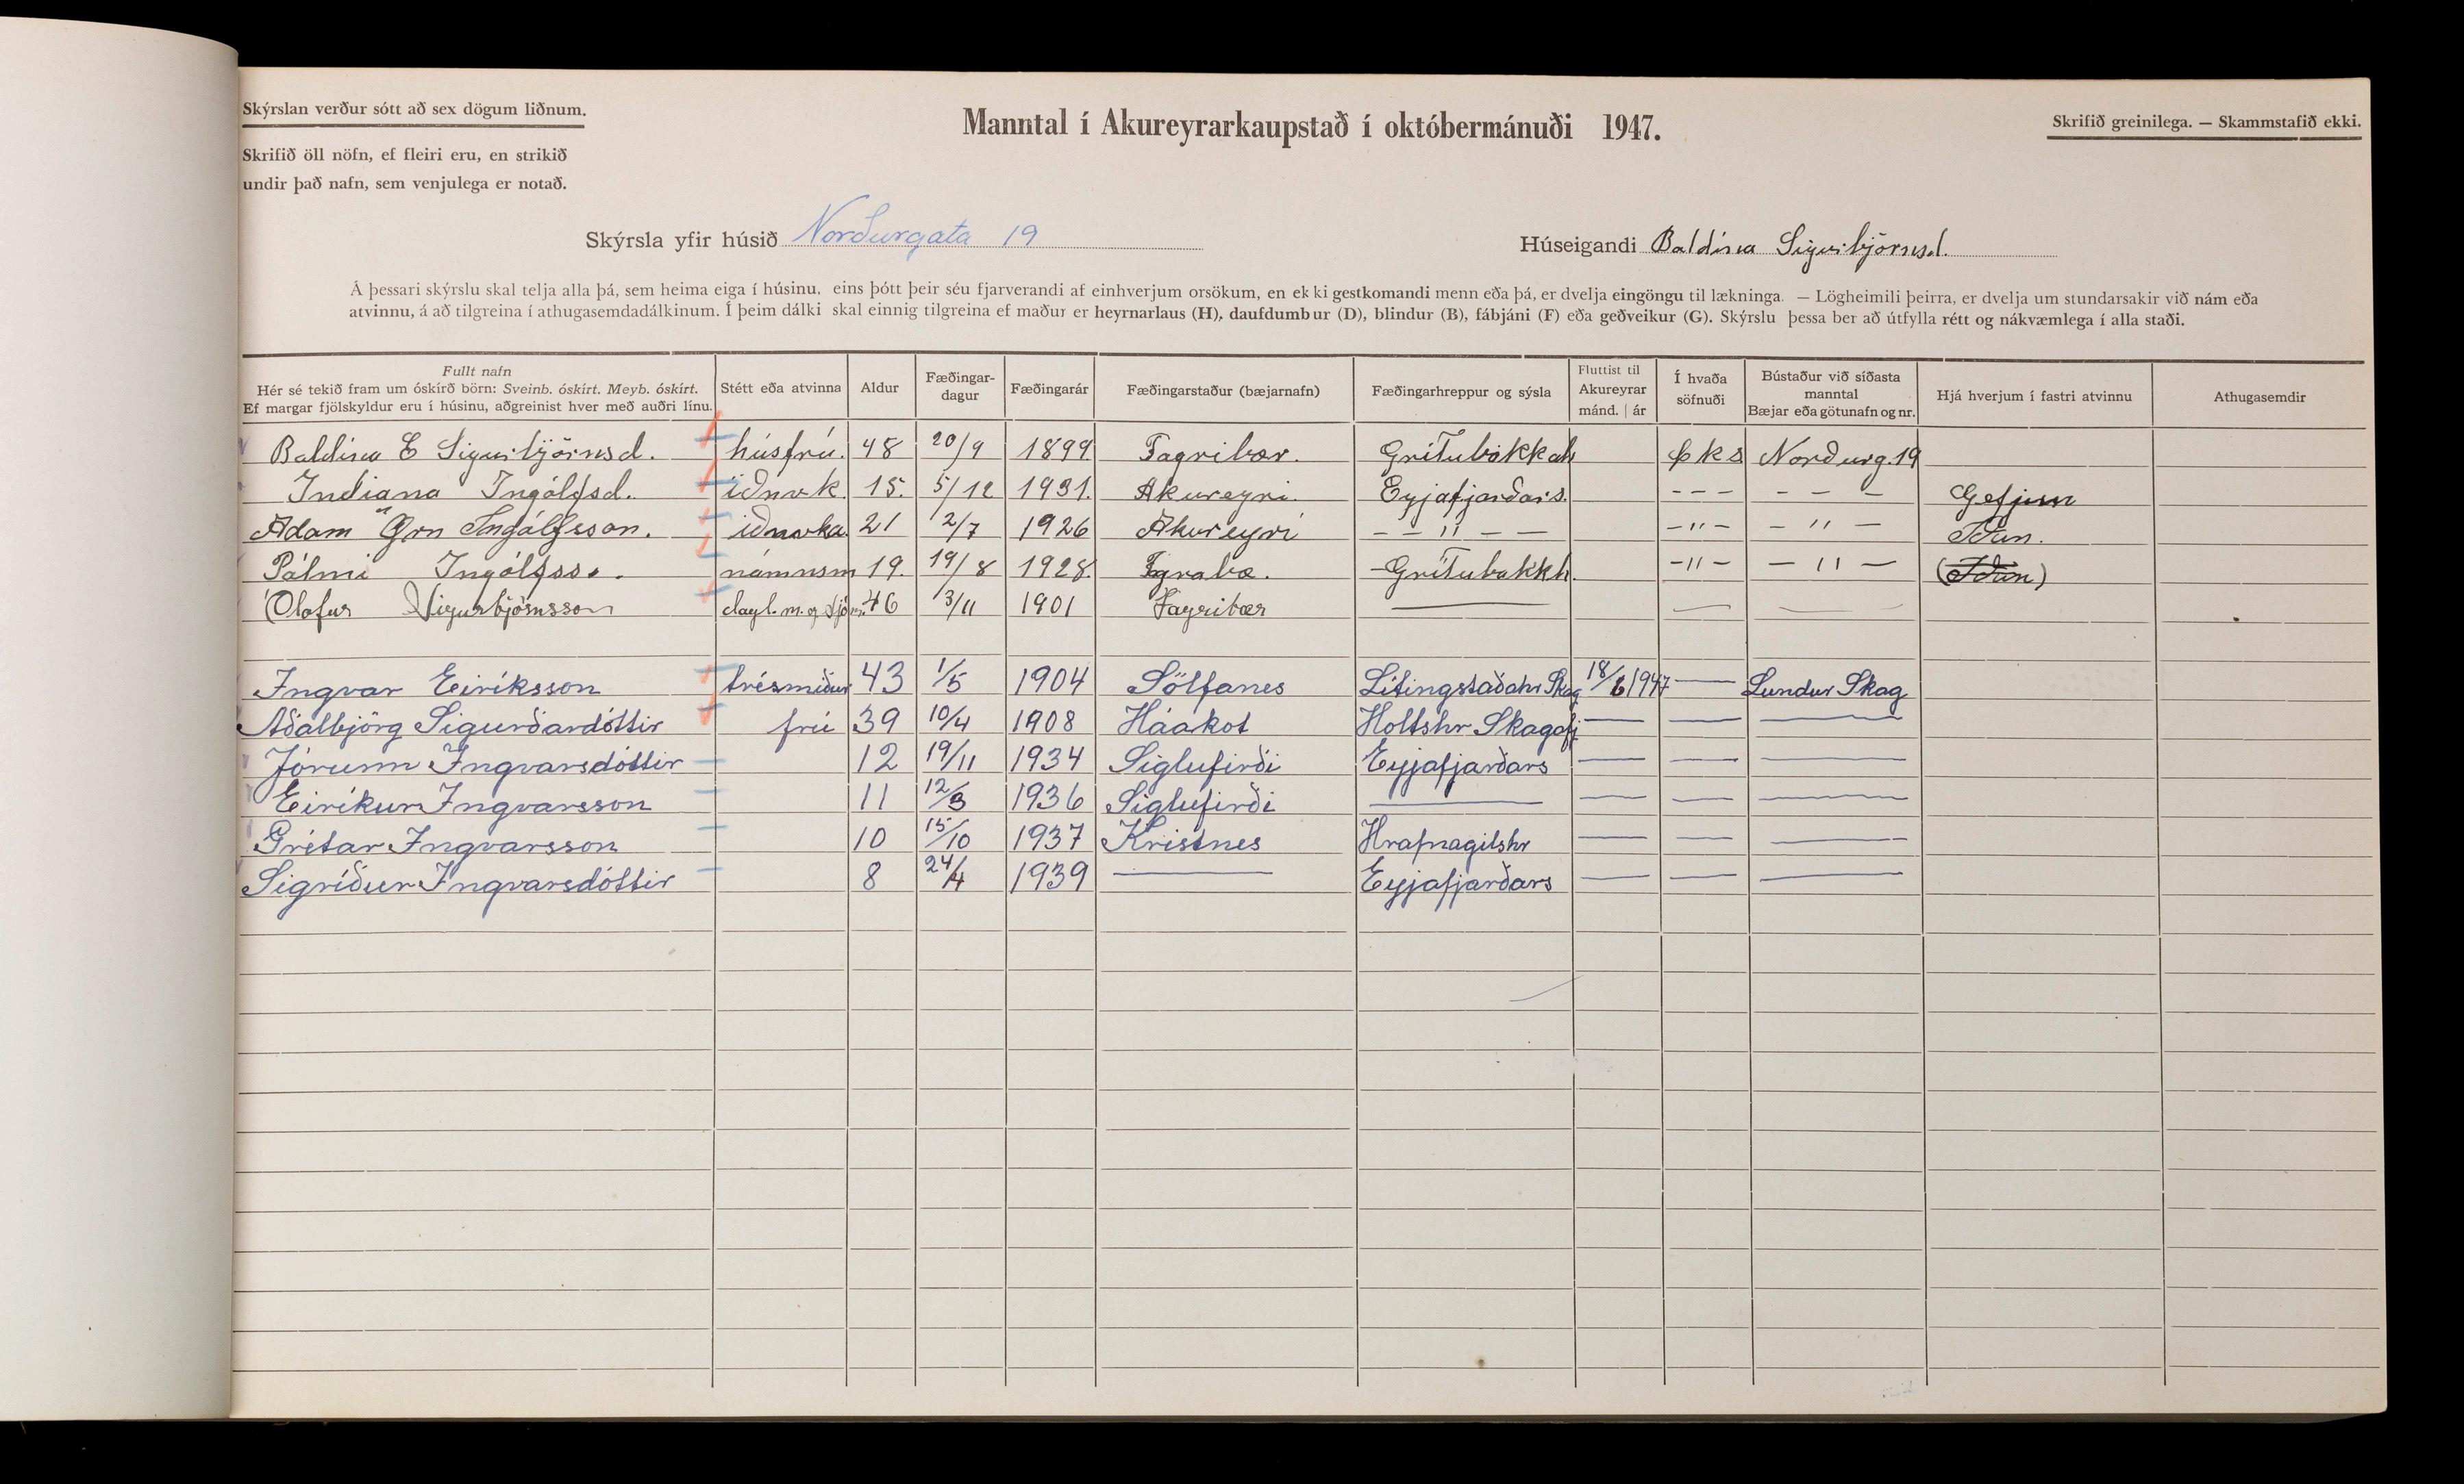 Skýrslan verður sótt að sex dögum liðnum.
Manntal í Akureyrarkaupstað í októbermánuði 1947.
Skrifið greinilega. — Skammstafið ekki.
Skrifið öll nöfn, ef fleiri eru, en strikið
undir það nafn, sem venjulega er notað.
Skýrsla yfir húsið Norðurgata 19
Húseigandi Baldína Sigurbjörnsd.
Á þessari skýrslu skal telja alla þá, sem heima eiga í húsinu, eins þótt þeir séu fjarverandi af einhverjum orsökum, en ekki gestkomandi menn eða þá, er dvelja eingöngu til lækninga. — Lögheimili þeirra, er dvelja um stundarsakir við nám eða
atvinnu, á að tilgreina í athugasemdadálkinum. Í þeim dálki skal einnig tilgreina ef maður er heyrnarlaus (H), daufdumbur (D), blindur (B), fábjáni (F) eða geðveikur (G). Skýrslu þessa ber að útfylla rétt og nákvæmlega í alla staði.
Fullt nafn
Hér sé tekið fram um óskírð börn: Sveinb. óskírt. Meyb. óskírt.
Ef margar fjölskyldur eru í húsinu, aðgreinist hver með auðri línu.
Stétt eða atvinna
Aldur
Fæðingar-
dagur
Fæðingarár
Fæðingarstaður (bæjarnafn)
Fæðingarhreppur og sýsla
Fluttist til
Akureyrar
mánd. | ár
Í hvaða
söfnuði
Bústaður við síðasta
manntal
Bæjar eða götunafn og nr.
Hjá hverjum í fastri atvinnu
Athugasemdir
Baldína E Sigurbjörnsd. húsfrú. 48 20/9 1899 Fagribær. Grítubakkah þks Norðurg. 19
Indiana Ingólfsd. iðnvk. 15. 5/12 1931. Akureyri. Eyjafjarðars. - - - - - - Gefjun
Adam Örn Ingólfsson. iðnvka. 21 2/7 1926 Akureyri - - " - - - " - - " - Iðun.
Pálmi Ingólfss. námnsm 19. 19/8 1928. Fgrabæ. Grítubakkh. - " - - " - (Iðun)
Ólafur Sigurbjörnsson dagl. m. og sjóm. 46 3/11 1901 Fagribær — — —
Ingvar Eiríksson trésmiður 43 1/5 1904 Sölfanes Lítingstaðahr Skag 18/6 1947 — Lundur Skag
Aðalbjörg Sigurðardóttir frú 39 10/4 1908 Háakot Holtshr Skagafj — — —
Jórunn Ingvarsdóttir 12 19/11 1934 Siglufirði Eyjafjarðars — — —
Eiríkur Ingvarsson 11 12/3 1936 Siglufirði — — — —
Grétar Ingvarsson 10 15/10 1937 Kristnes Hrafnagilshr — — —
Sigríður Ingvarsdóttir 8 24/4 1939 — Eyjafjarðars — — —